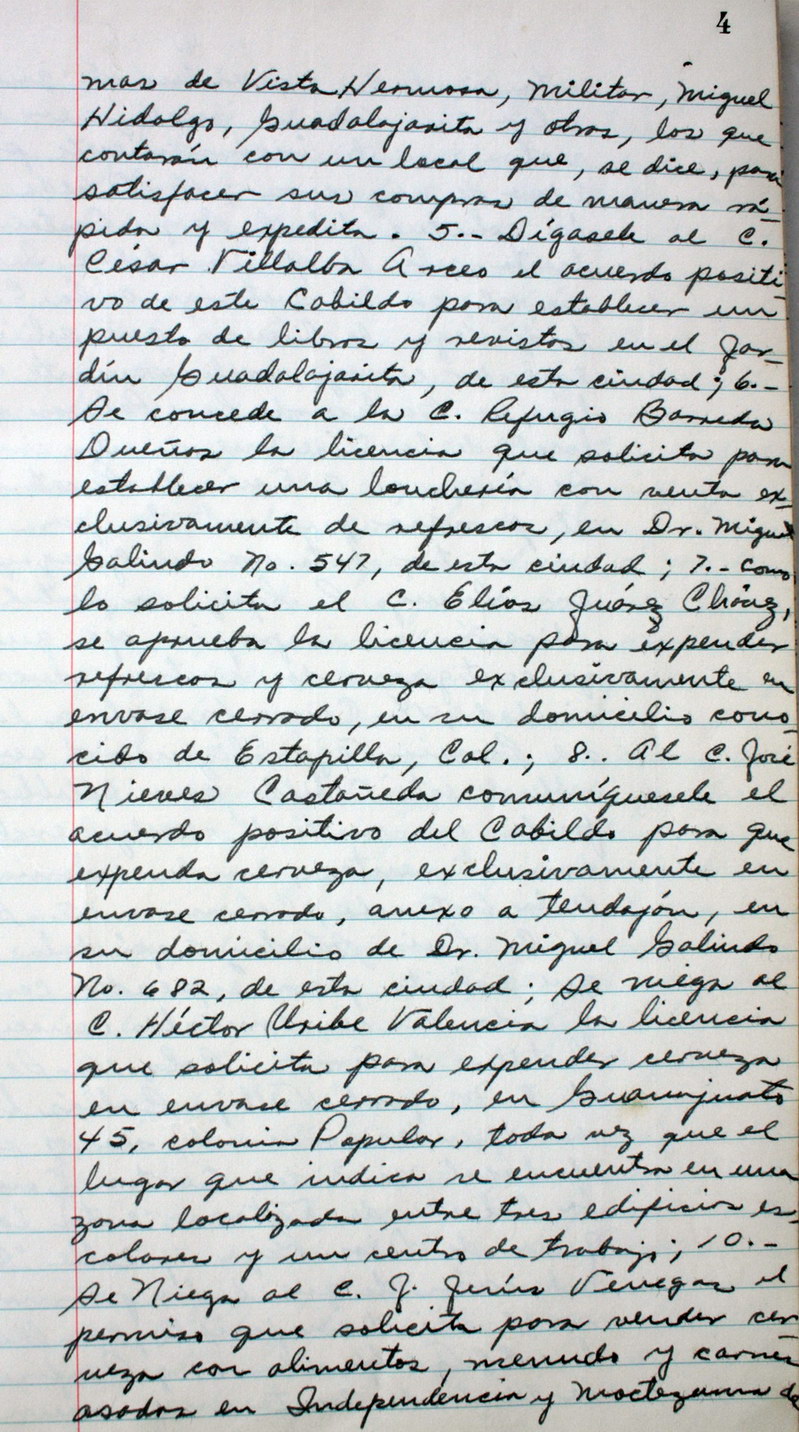 4
mas de Vista Hermosa, Militar, Miguel
Hidalgo, Guadalajarita y otras, los que
contarán con un local que, se dice, para
satisfacer sus compras de manera rá-
pida y expedita. 5.- Dígasele al C.
César Villalba Arceo el acuerdo positi-
vo de este Cabildo para establecer un
puesto de libros y revistas en el Jar-
dín Guadalajarita, de esta ciudad; 6.-
Se concede a la C. Refugio Barreda
Dueñas la licencia que solicita para
establecer una lonchería con venta ex-
clusivamente de refrescos, en Dr. Miguel
Galindo No. 547, de esta ciudad; 7.- Como
lo solicita el C. Elías Juárez Chávez,
se aprueba la licencia para expender
refrescos y cerveza exclusivamente en
envase cerrado, en su domicilio cono-
cido de Estapilla, Col.; 8.. Al C. José
Nieves Castañeda comuníquesele el
acuerdo positivo del Cabildo para que
expenda cerveza, exclusivamente en
envase cerrado, anexo a tendajón, en
su domicilio de Dr. Miguel Galindo
No. 682, de esta ciudad; Se niega al
C. Héctor Uribe Valencia la licencia
que solicita para expender cerveza
en envase cerrado, en Guanajuato
45, colonia Popular, toda vez que el
lugar que indica se encuentra en una
zona localizada entre tres edificios es-
colares y un centro de trabajo; 10.-
Se Niega al C. J. Jesús Venegas el
permiso que solicita para vender cer
veza con alimentos, menudo y carnes
asadas en Independencia y Moctezuma de